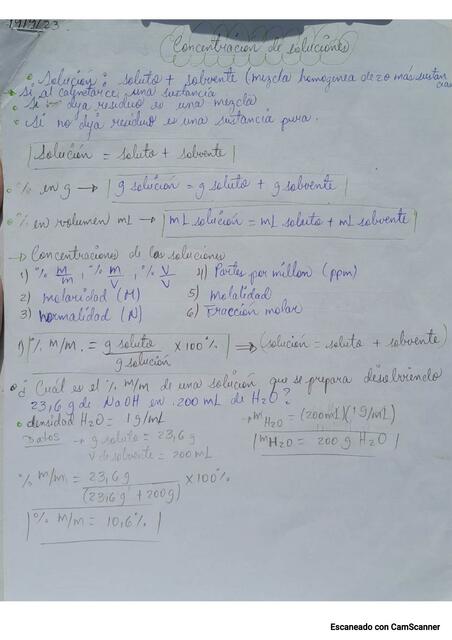 19/9/23
Concentracion de soluciones
Solución: soluto + solvente (mezcla homoginea de 2 o más sustancias
Si al calentarce, una sustancia
Si deja residuo es una mezcla
Si no deja residuo es una sustancia pura.
Solución = soluto + solvente
% en g → g solución = g soluto + g solvente
% en volumen mL → mL solución = mL soluto + mL solvente
→ Concentraciones de las soluciones
1) % M/m, % m/V, % V/V 4) Partes por millon (ppm)
2) molaridad (M) 5) molalidad
3) normalidad (N) 6) Fracción molar
1) % m/m. = g soluto / g solución x 100% ⇒ (solución = soluto + solvente)
¿ Cuál es el % m/m de una solución que se prepara disolviendo
23,6 g de NaOH en 200 mL de H₂O?
densidad H₂O = 1 g/mL → mH₂O = (200mL)(1 g/mL)
Datos → g soluto = 23,6 g mH₂O = 200 g H₂O
V de solvente = 200 mL
% m/m = 23,6 g / (23,6 g + 200g) x 100%
% m/m = 10,6 %
Escaneado con CamScanner